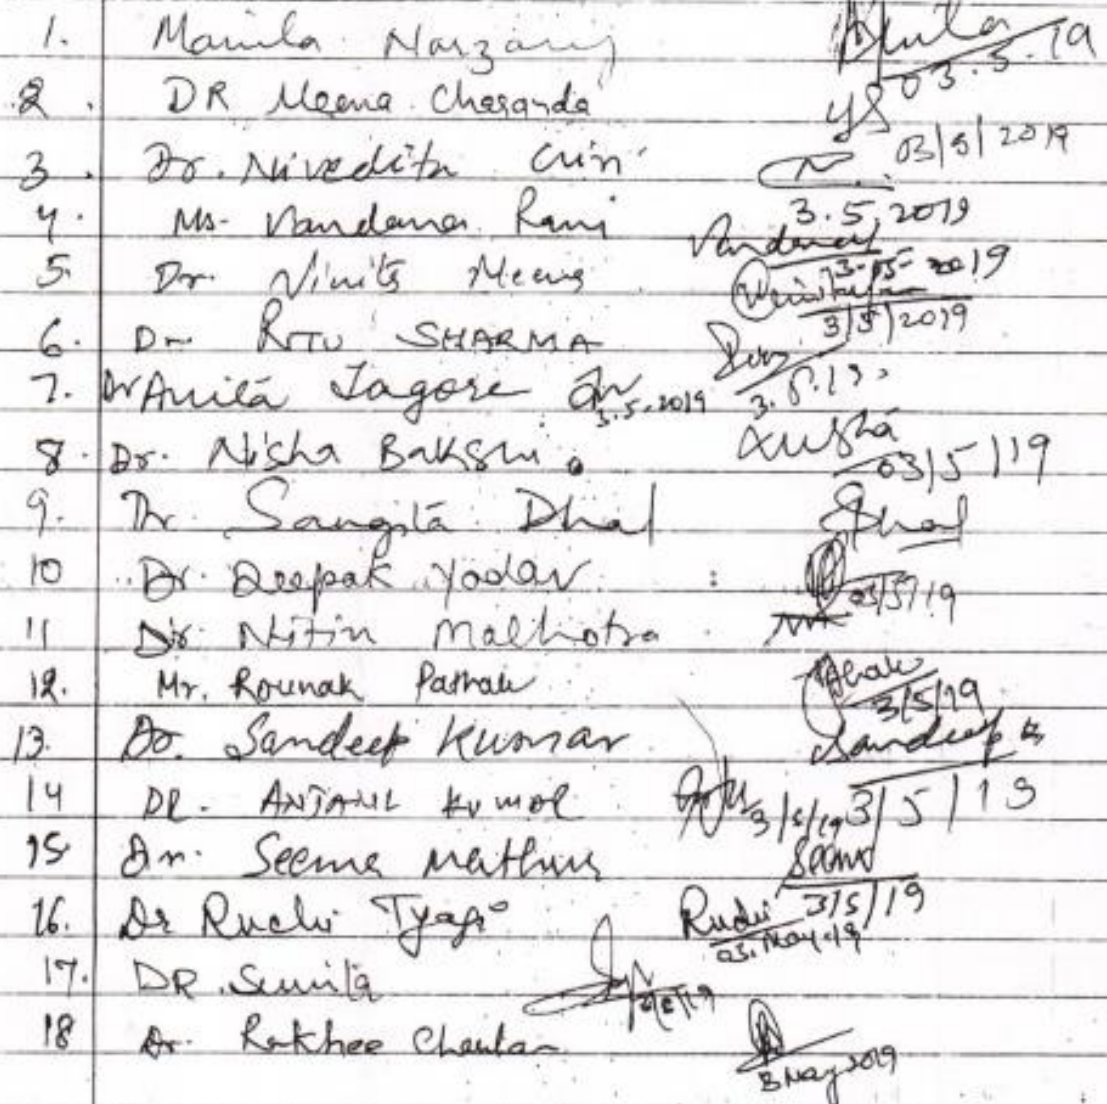 1. Manila Narzary 03.5.19
2. DR Meena Charanda 03/5/2019
3. Dr. Nivedita Giri N. 3.5.2019
4. Ms. Vandana Rani Vandana 3-05-2019
5 Dr. Vinita Meena 3/5/2019
6. Dr RITU SHARMA 3.5.19
7. Dr Anita Tagore 3.5.2019
8. Dr. Nisha Bakshi Nisha 03/5/19
9. Dr. Sangita Dhal Dhal
10 Dr. Deepak Yadav 03/5/19
11 Dr. Nitin Malhotra NM
12. Mr. Rounak Pathak Pathak 3/5/19
13. Dr. Sandeep Kumar Sandeep K 3/5/19
14 DR. ANJANI KUMAR 3/5/19
15 Dr. Seema Mathur Seema 3/5/19
16. Dr Ruchi Tyagi Ruchi 03.May.19
17. DR. Sunita 3/5/19
18 Dr. Rakhee Chauhan 3 May 2019